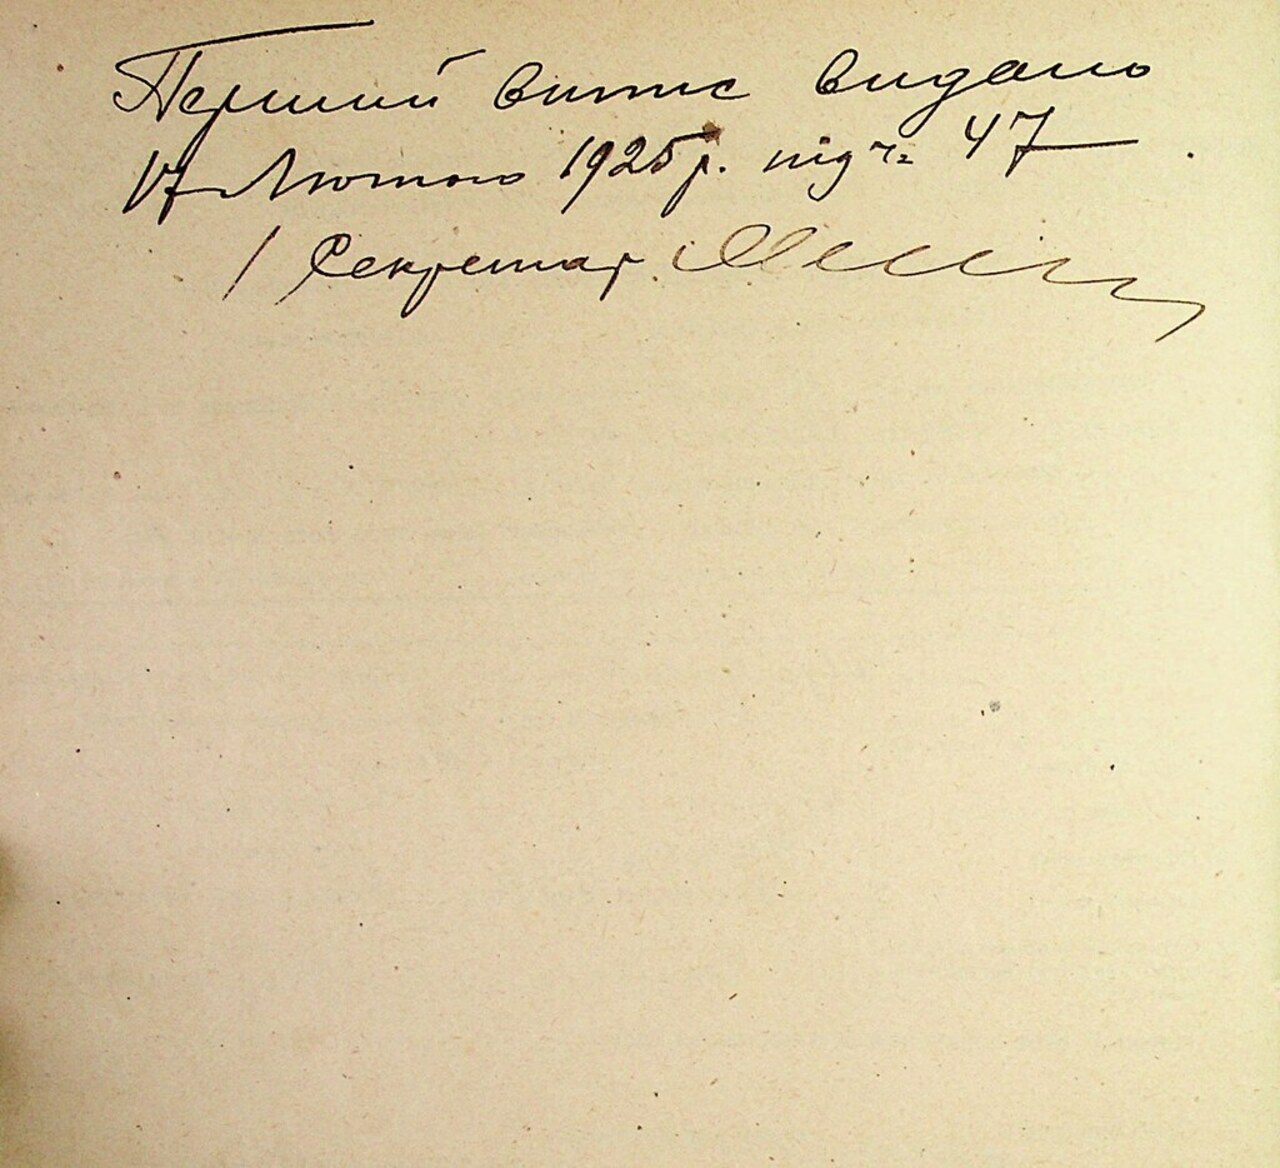 Перший витис видано
17 Лютого 1925 р. під ч. 47
/ Секретар